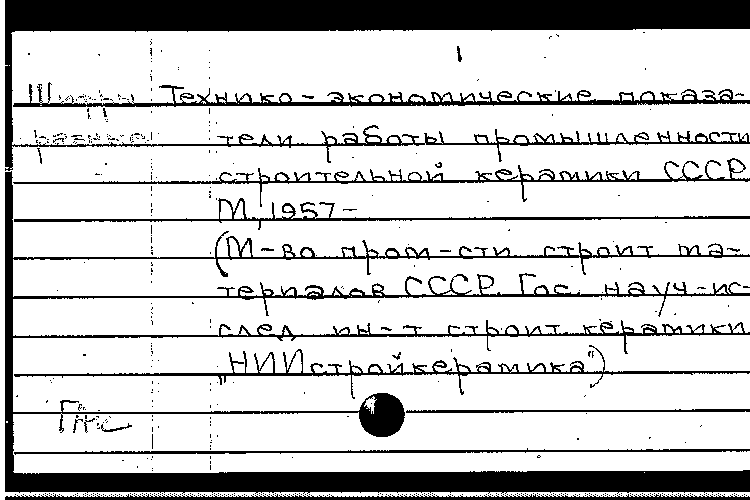 Шифры Технико-экономические показа-
разные тели работы промышленности
строительной керамики СССР.
М., 1957-
(М-во пром-сти строит. ма-
териалов СССР. Гос. науч.-ис-
след. ин-т строит. керамики
„НИИстройкерамика")